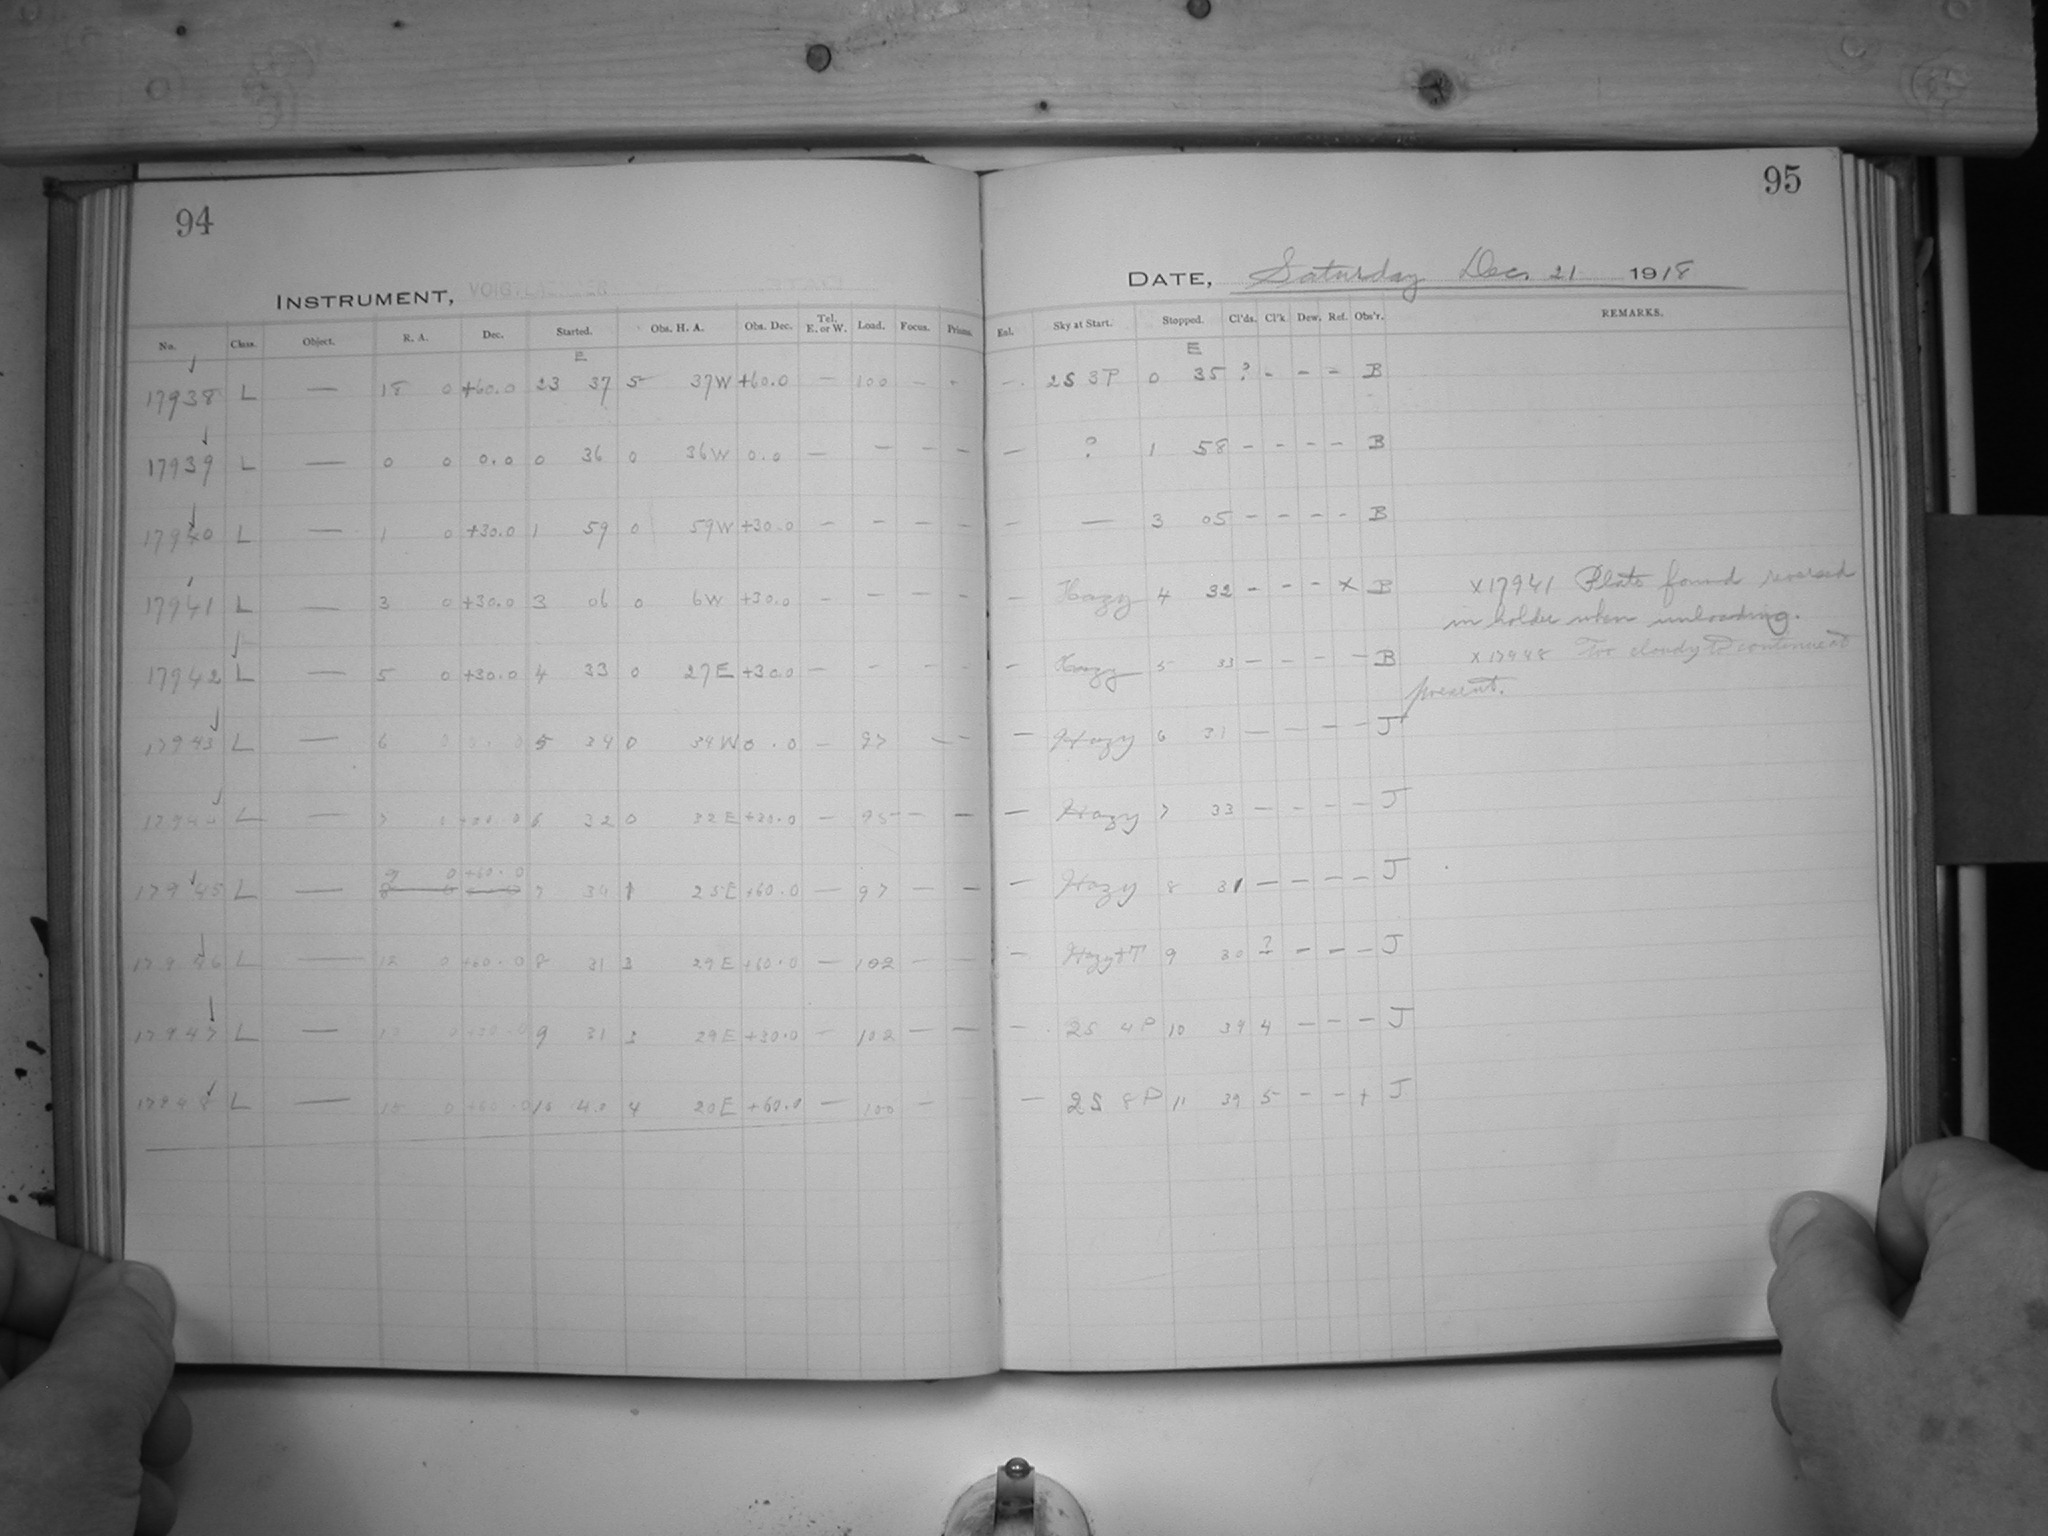 94
INSTRUMENT,
No. Class. Object. R. A. Dec. Started. Obs. H. A. Obs. Dec. Tel. E. or W. Load. Focus. Prisms.
E
17938 L — 18 0 +60.0 23 37 5 37W +60.0 — 100 - -
17939 L — 0 0 0.0 0 36 0 36W 0.0 — — — —
17940 L — 1 0 +30.0 1 59 0 59W +30.0 — — — —
17941 L — 3 0 +30.0 3 06 0 6W +30.0 — — — —
17942 L — 5 0 +30.0 4 33 0 27E +30.0 — - - -
17943 L — 6 0 0.0 5 34 0 34W 0.0 — 97 — —
17944 L — 7 0 6 32 0 32E +30.0 — 95 — —
17945 L — 9 0 +60.0 7 34 1 25E +60.0 — 97 — —
17946 L — 12 0 +60.0 8 31 3 29E +60.0 — 102 — —
17947 L — 0 +30.0 9 31 3 29E +30.0 — 102 — —
17948 L — 0 +60.0 10 40 4 20E +60.0 — 100 —
95
DATE, Saturday Dec. 21 1918
Enl. Sky at Start. Stopped. Cl'ds. Cl'k Dew. Ref. Obs'r. REMARKS.
E
- 2S 3P 0 35 ? - - - B
— ? 1 58 - - - - B
— — 3 05 - - - - B
— Hazy 4 32 - - - x B x17941 Plate found reversed
in holder when unloading.
— Hazy 5 33 — - - - B x17948 Too cloudy to continue at
present.
— Hazy 6 31 — — - - J
— Hazy 7 33 — - - - J
— Hazy 8 31 — — - — J
— Hazy+T 9 30 ? — — — J
— 2S 4P 10 39 4 — - - J
— 2S 8P 11 39 5 - - + J